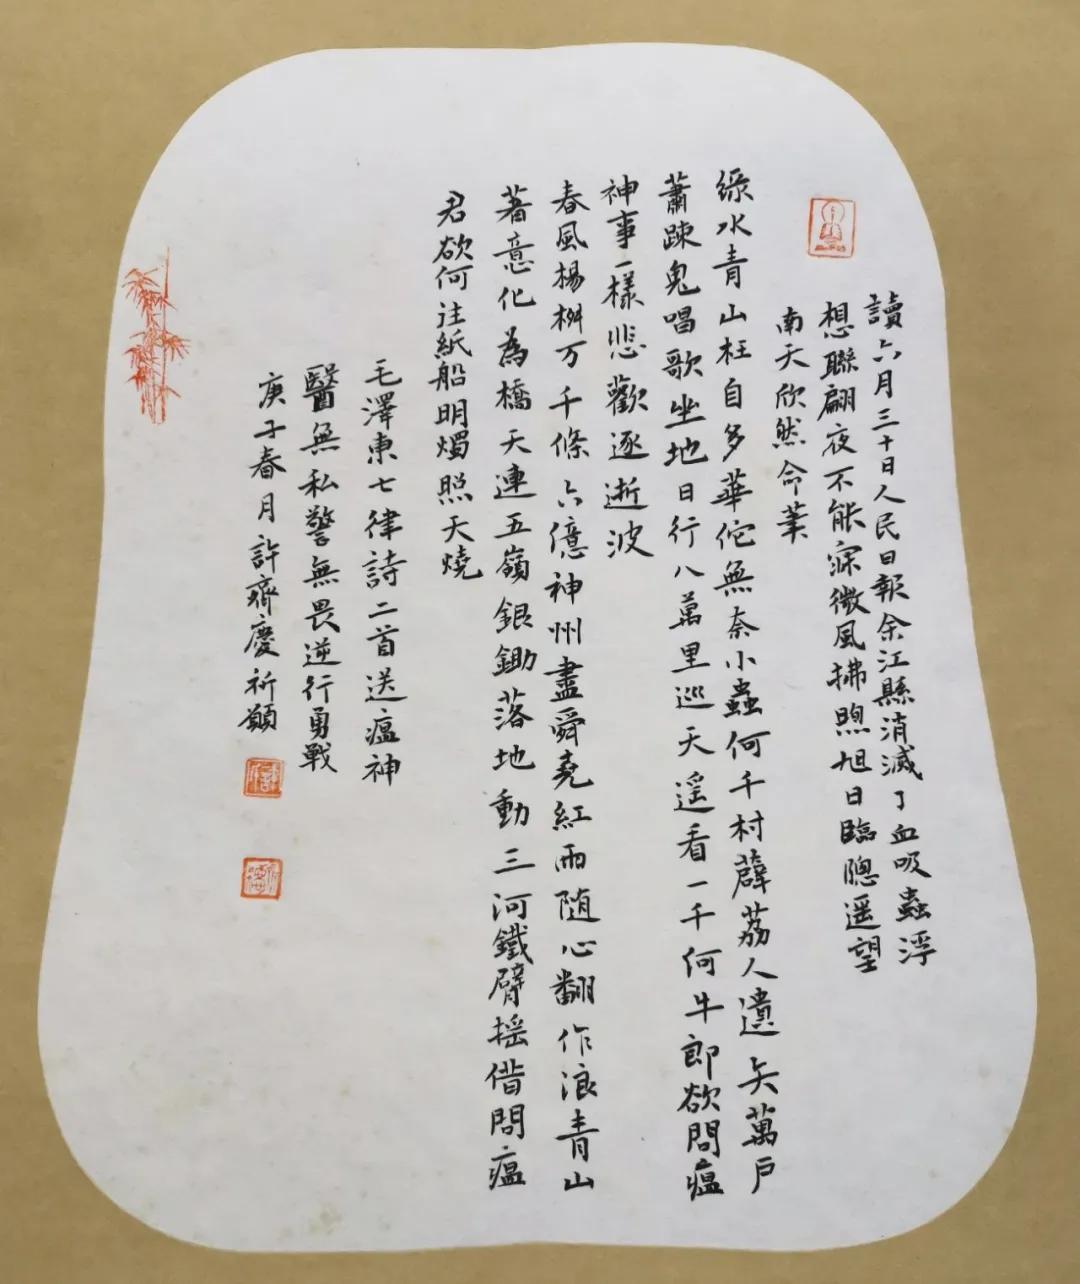 讀六月三十日人民日報余江縣消滅了血吸蟲浮
想聯翩夜不能寐微風拂煦旭日臨牕遥望
南天欣然命筆
綠水青山枉自多華佗無奈小蟲何千村薜荔人遺矢萬戶
蕭疎鬼唱歌坐地日行八萬里巡天遥看一千何牛郎欲問瘟
神事一樣悲歡逐逝波
春風楊柳万千條六億神州盡舜堯紅雨随心翻作浪青山
著意化為橋天連五嶺銀鋤落地動三河鐵臂摇借問瘟
君欲何往紙船明燭照天燒
毛澤東七律詩二首送瘟神
醫無私警無畏逆行勇戰
庚子春月許齊慶祈願